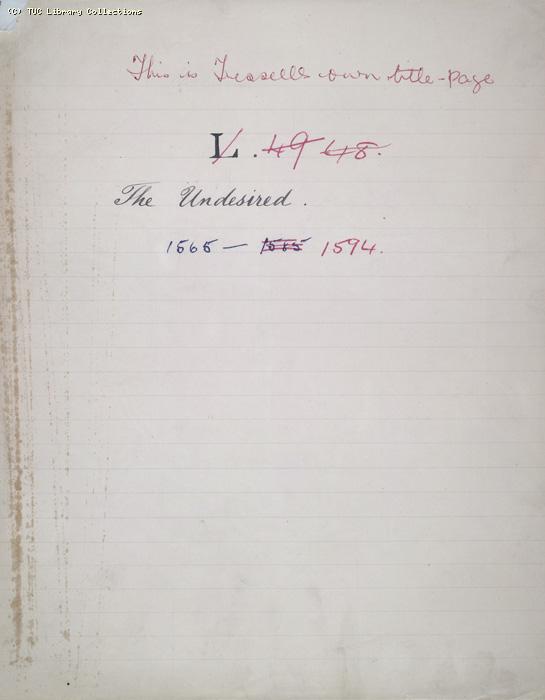 (C) TUC Library Collections
This is Tressell's own title-page
L. 49 48.
The Undesired.
1565 — 1585 1594.